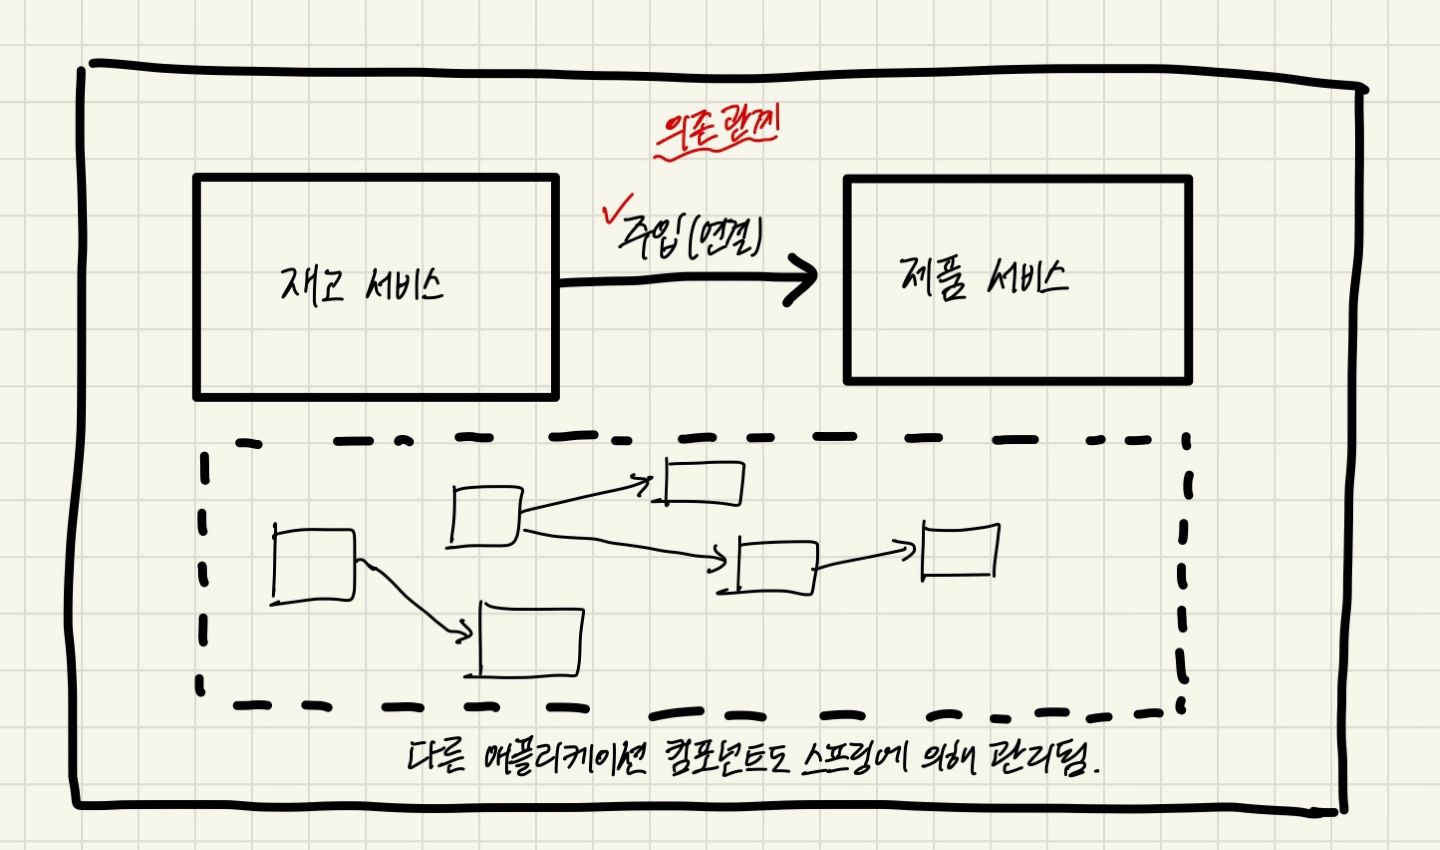 의존관계
✓주입(연결)
재고 서비스
제품 서비스
다른 애플리케이션 컴포넌트도 스프링에 의해 관리됨.